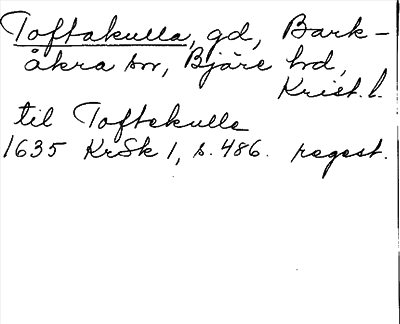 Toftakulla, gd, Bark-
åkra sn, Bjäre hd,
Krist. l.
til Toftekulle
1635 KrSk 1, s. 486. regest.